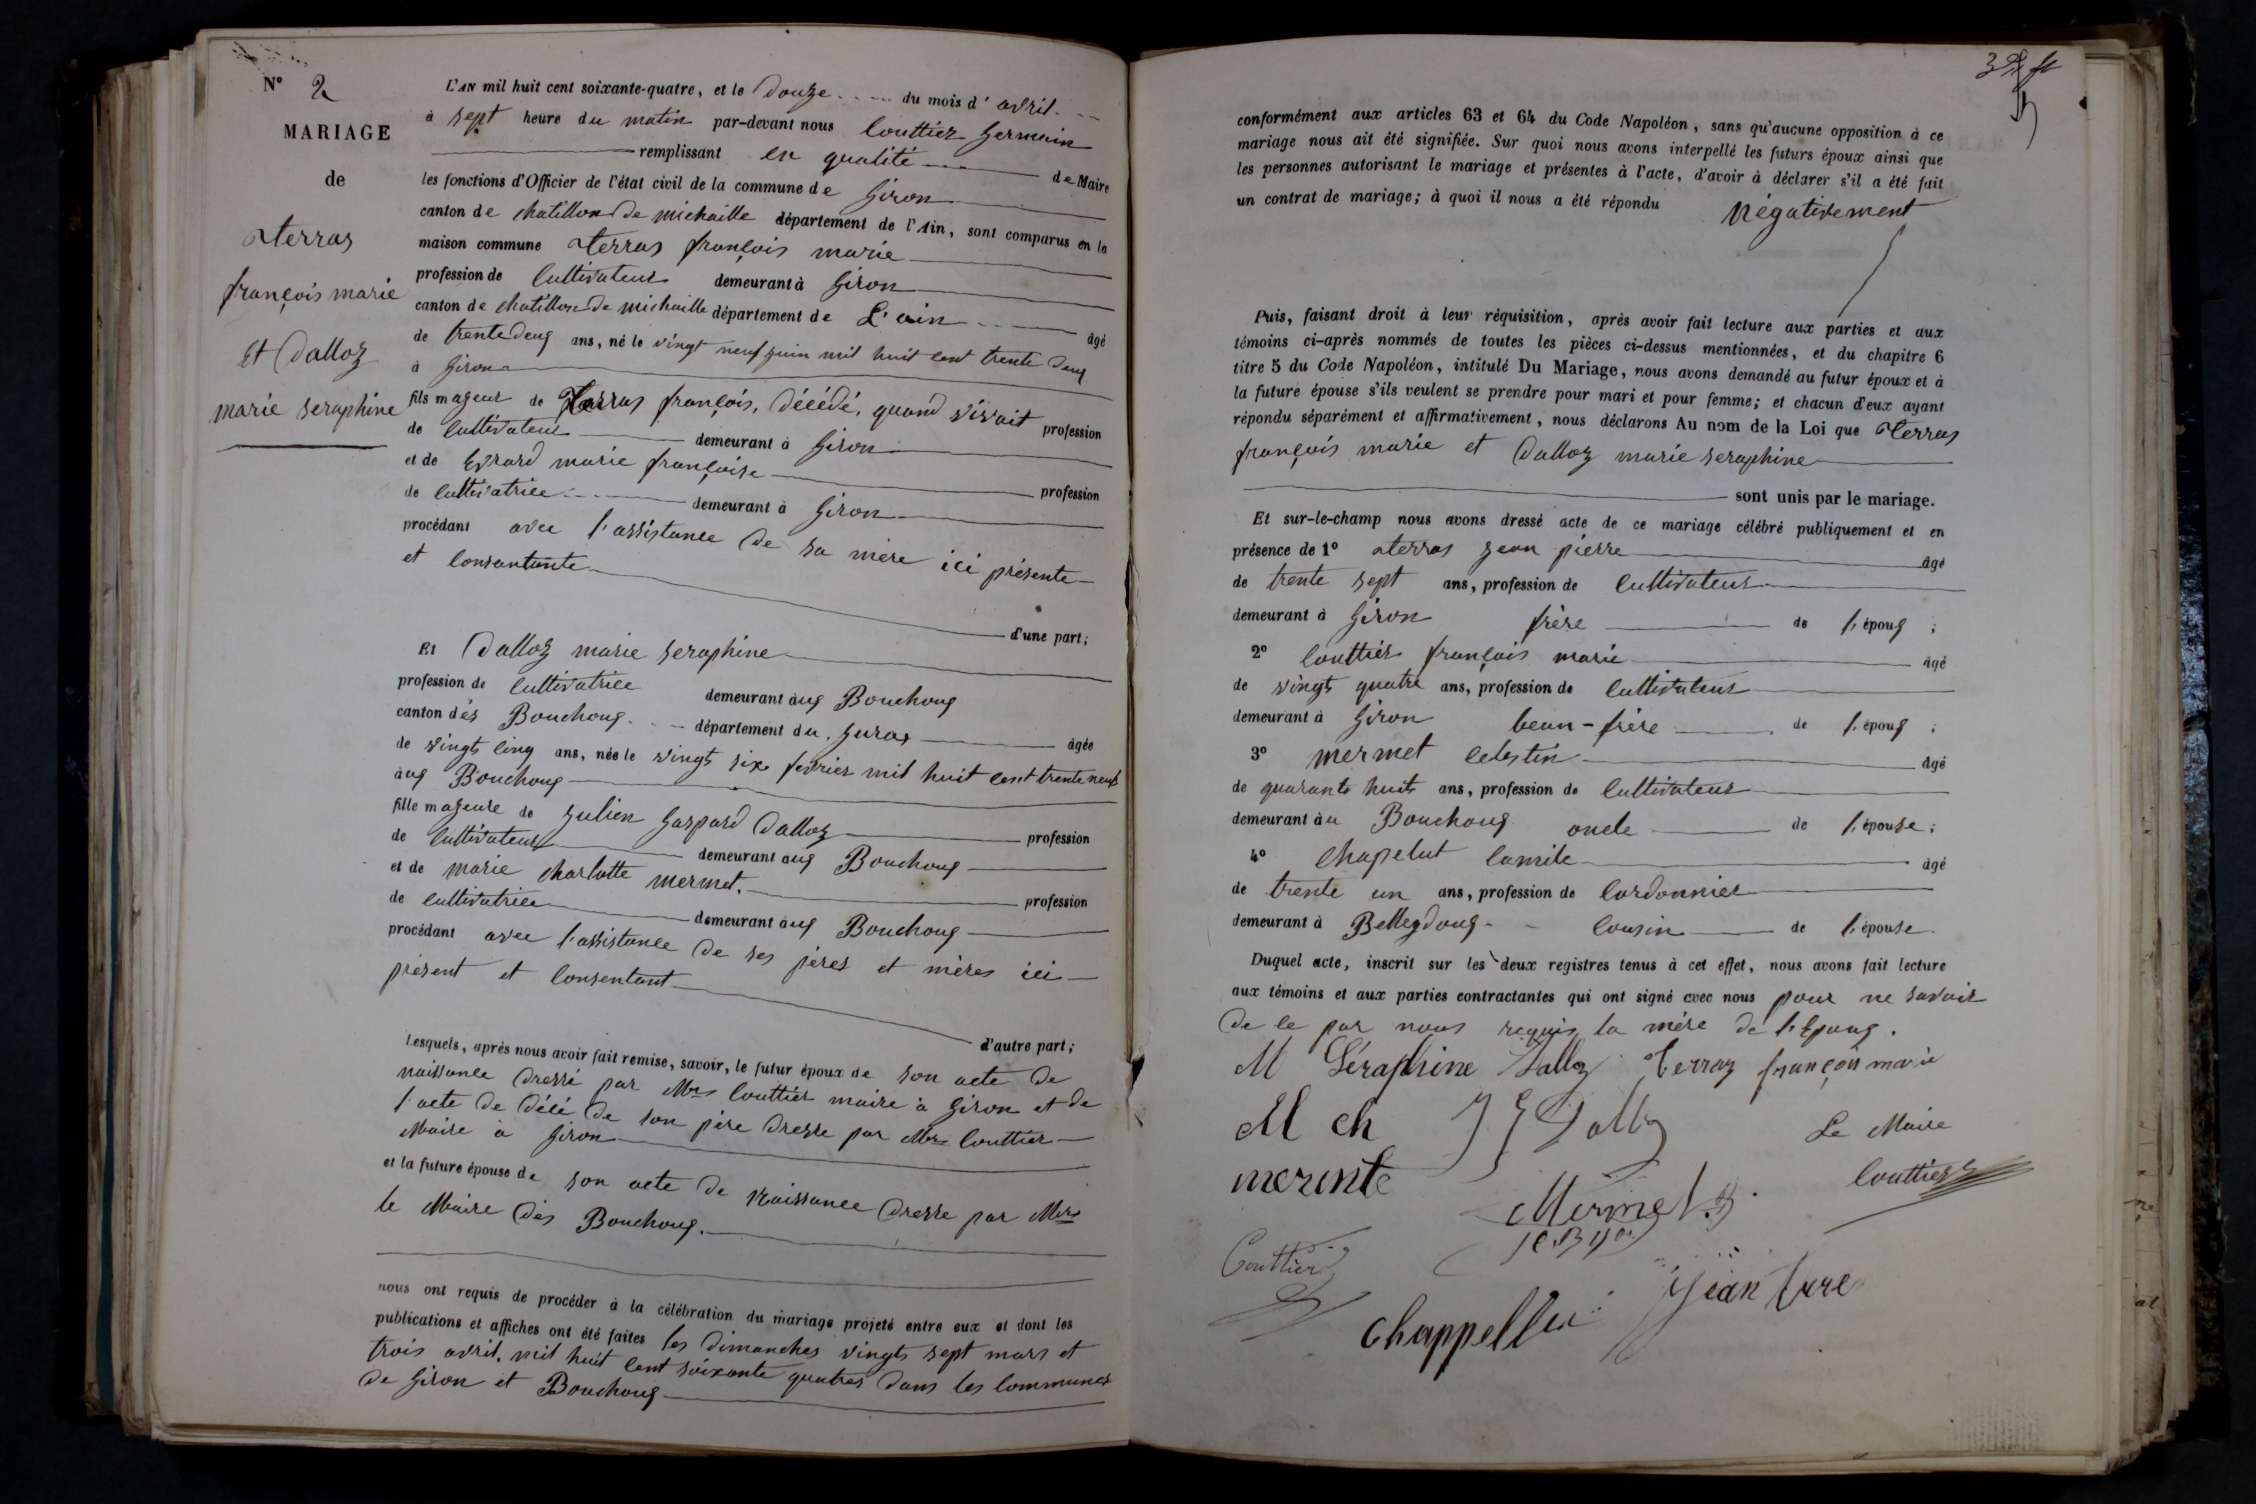 N° 2
MARIAGE
de
terras
françois marie
Et Dalloz
marie seraphine
L'AN mil huit cent soixante-quatre, et le douze du mois d'avril
à sept heure du matin par-devant nous Couttier Germain
remplissant en qualité de Maire
les fonctions d'Officier de l'état civil de la commune de Giron
canton de chatillon de michaille département de l'Ain, sont comparus en la
maison commune terras françois marie
profession de Cultivateur demeurant à Giron
canton de chatillon de michaille département de L'ain âgé
de trente deux ans, né le vingt neuf juin mil huit cent trente deux
à Giron
fils majeur de terras françois, décédé, quand vivait profession
de Cultivateur demeurant à Giron
et de Evrard marie françoise profession
de Cultivatrice demeurant à Giron
procédant avec l'assistance de sa mère ici présente
et consantante
d'une part;
Et Dalloz marie seraphine
profession de Cultivatrice demeurant aux Bouchoux
canton dés Bouchoux département du Jura âgée
de vingts cinq ans, née le vingts six fevrier mil huit cent trente neuf
aux Bouchoux
fille majeure de Julien Gaspard Dalloz profession
de Cultivateur demeurant aux Bouchoux
et de marie charlotte mermet. profession
de cultivatrice demeurant aux Bouchoux
procédant avec l'assistance de ses pères et mères ici
présent et consentant
d'autre part;
Lesquels, après nous avoir fait remise, savoir, le futur époux de son acte de
naissance dressé par Mrs Couttier maire à Giron et de
l'acte de décé de son père dresse par Mrs Couttier
Maire à Giron
et la future épouse de son acte de Naissance dresse par Mrs
le Maire dés Bouchoux.
nous ont requis de procéder à la célébration du mariage projeté entre eux et dont les
publications et affiches ont été faites les dimanches vingts sept mars et
trois avril, mil huit cent soixante quatres dans les communes
de Giron et Bouchoux
conformément aux articles 63 et 64 du Code Napoléon, sans qu'aucune opposition à ce
mariage nous ait été signifiée. Sur quoi nous avons interpellé les futurs époux ainsi que
les personnes autorisant le mariage et présentes à l'acte, d'avoir à déclarer s'il a été fait
un contrat de mariage; à quoi il nous a été répondu Négativement
Puis, faisant droit à leur réquisition, après avoir fait lecture aux parties et aux
témoins ci-après nommés de toutes les pièces ci-dessus mentionnées, et du chapitre 6
titre 5 du Code Napoléon, intitulé Du Mariage, nous avons demandé au futur époux et à
la future épouse s'ils veulent se prendre pour mari et pour femme; et chacun d'eux ayant
répondu séparément et affirmativement, nous déclarons Au nom de la Loi que terras
françois marie et Dalloz marie seraphine
sont unis par le mariage.
Et sur-le-champ nous avons dressé acte de ce mariage célébré publiquement et en
présence de 1° terras jean pierre âgé
de trente sept ans, profession de Cultivateur
demeurant à Giron frère de l'époux ;
2° Couttier françois marie âgé
de vingts quatre ans, profession de Cultivateur
demeurant à Giron beau-frère de l'époux ;
3° mermet celestin âgé
de quarante huits ans, profession de Cultivateur
demeurant au Bouchoux oncle de l'épouse ;
4° Chapelut Camile âgé
de trente un ans, profession de Cordonnier
demeurant à Belleydoux Cousin de l'épouse.
Duquel acte, inscrit sur les deux registres tenus à cet effet, nous avons fait lecture
aux témoins et aux parties contractantes qui ont signé avec nous pour ne savoir
de ce par nous requis la mère de l'Epoux.
M Séraphine Dalloz Terraz françois marie
M ch J G Dalloz Le Maire
Mermet Couttier
Couttier
Chappellu